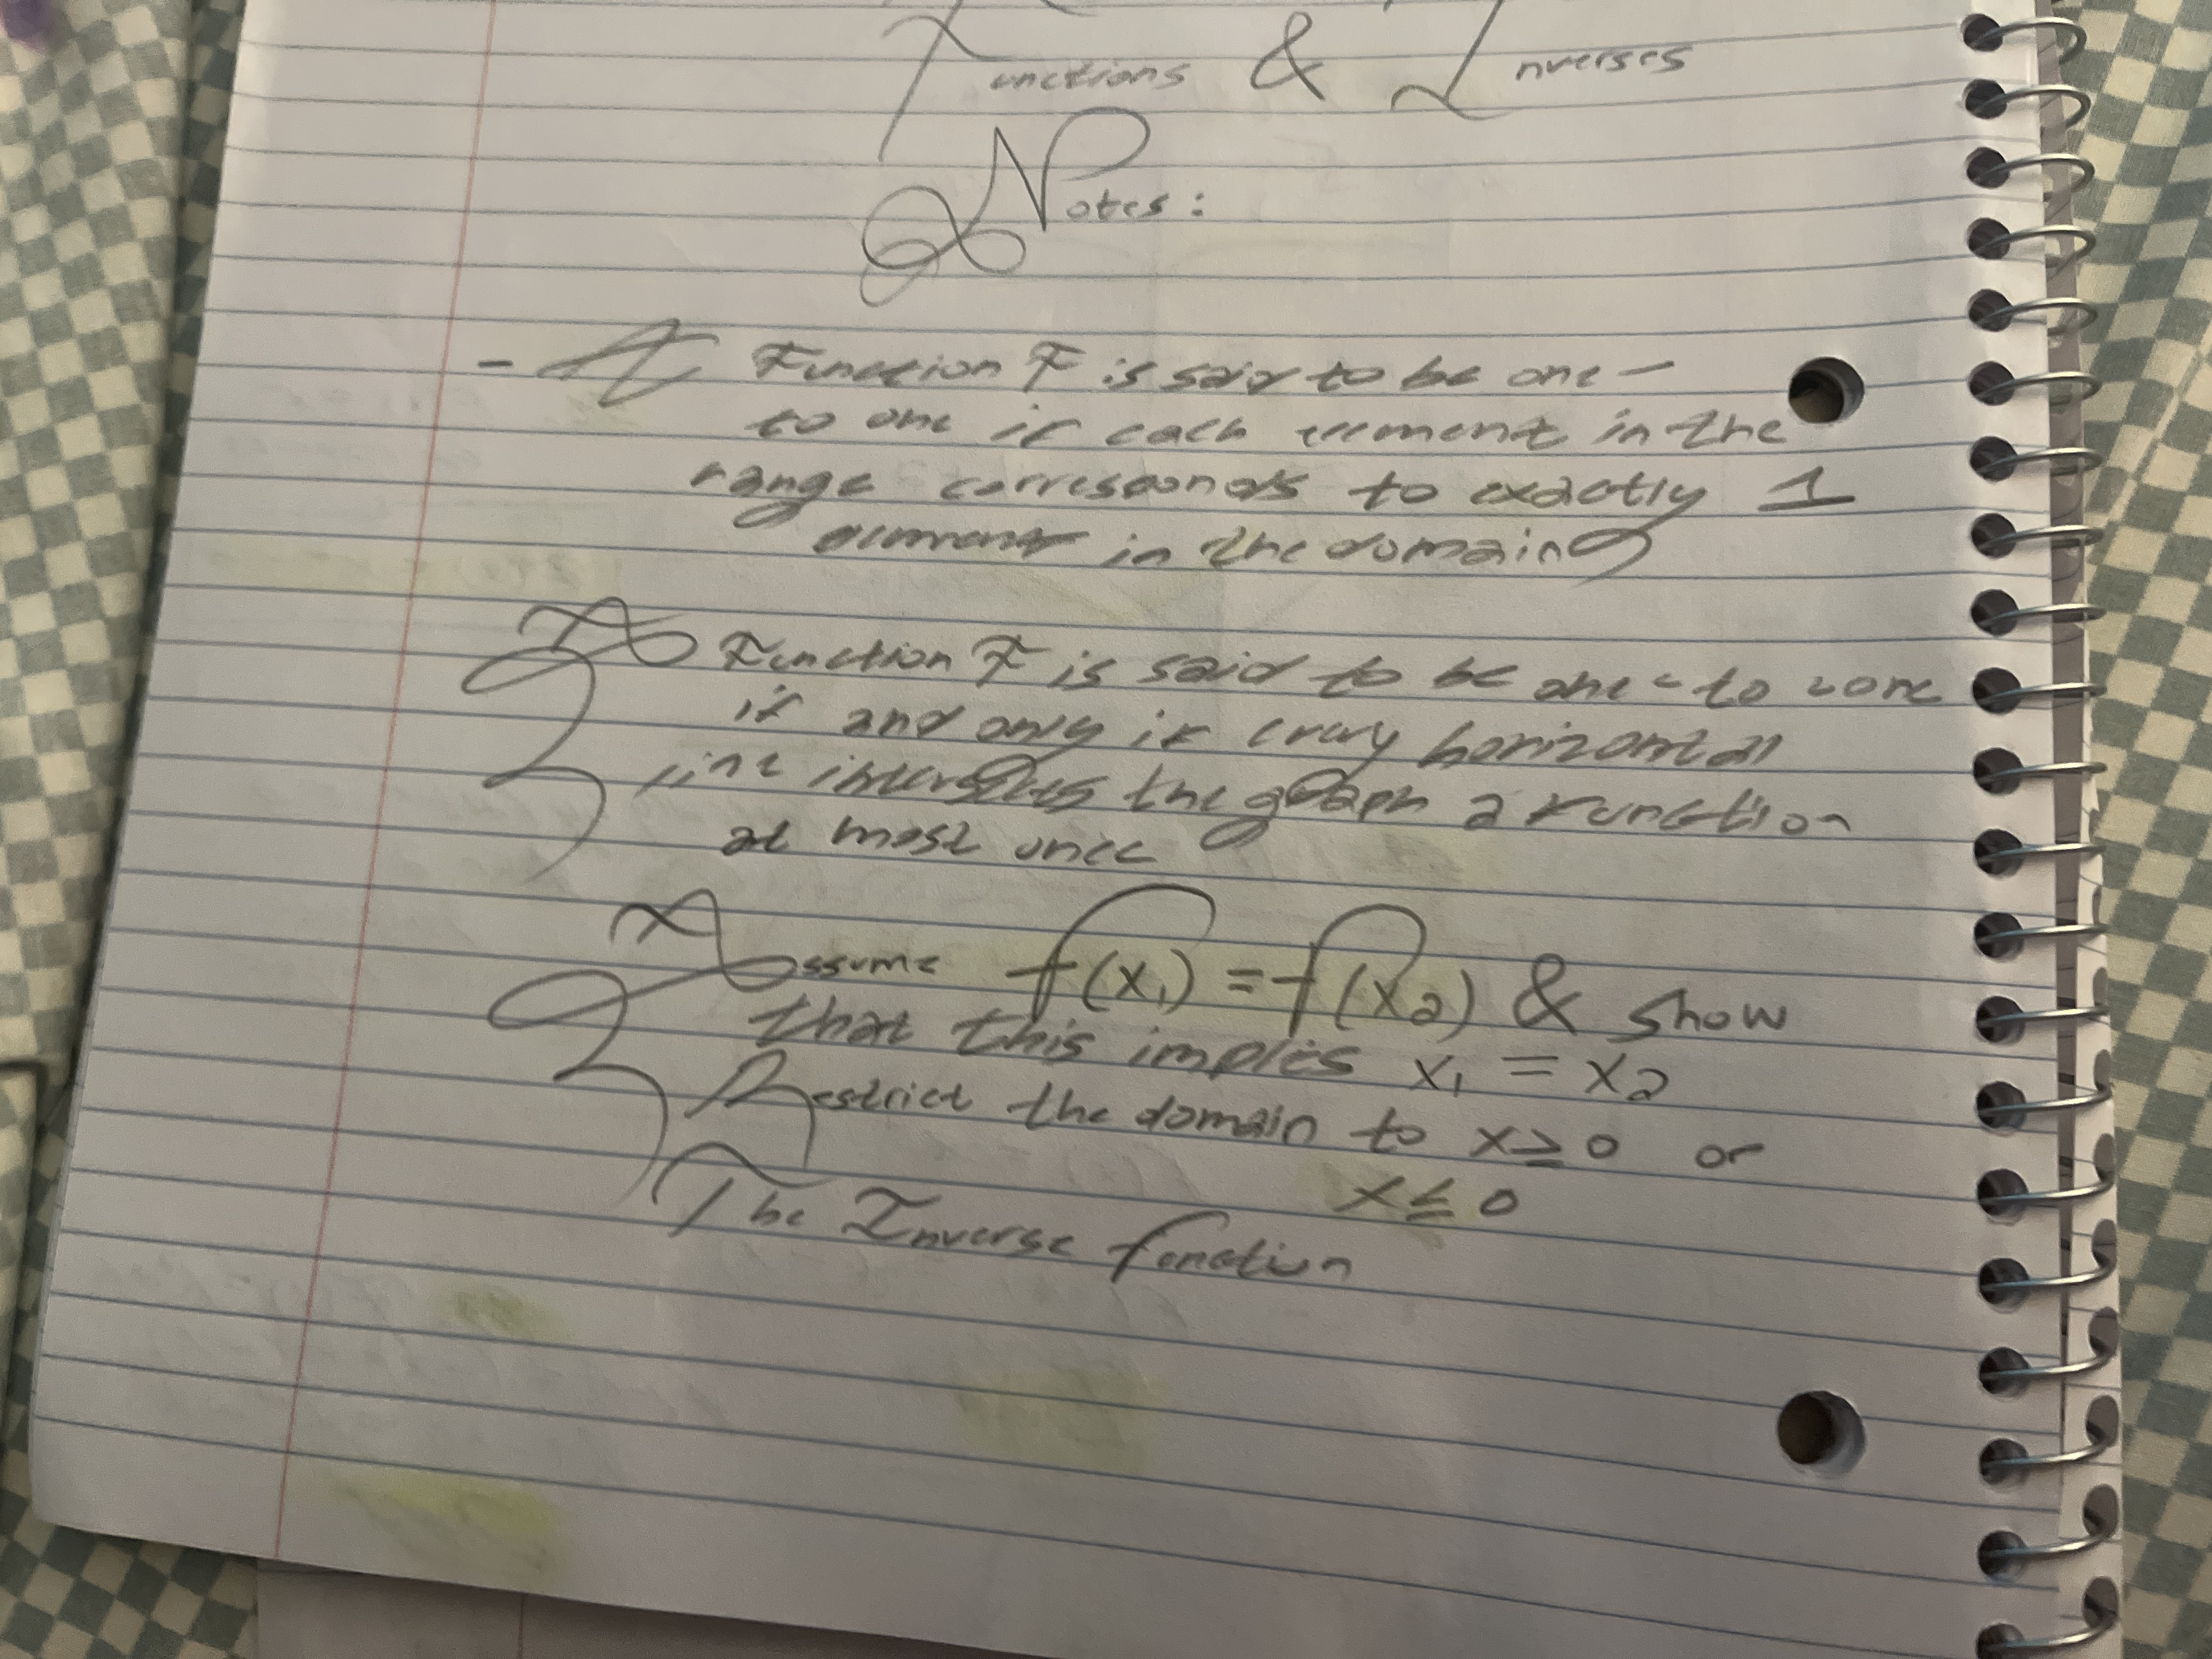 Functions & Inverses
Notes:
- A Function F is said to be one-
to one if each element in the
range corresponds to exactly 1
element in the domain
A Function F is said to be one-to-one
if and only if every horizontal
line intersects the graph a function
at most once
Assume f(x₁) = f(x₂) & show
that this implies x₁ = x₂
Restrict the domain to x ≥ 0 or
x ≤ 0
The Inverse function